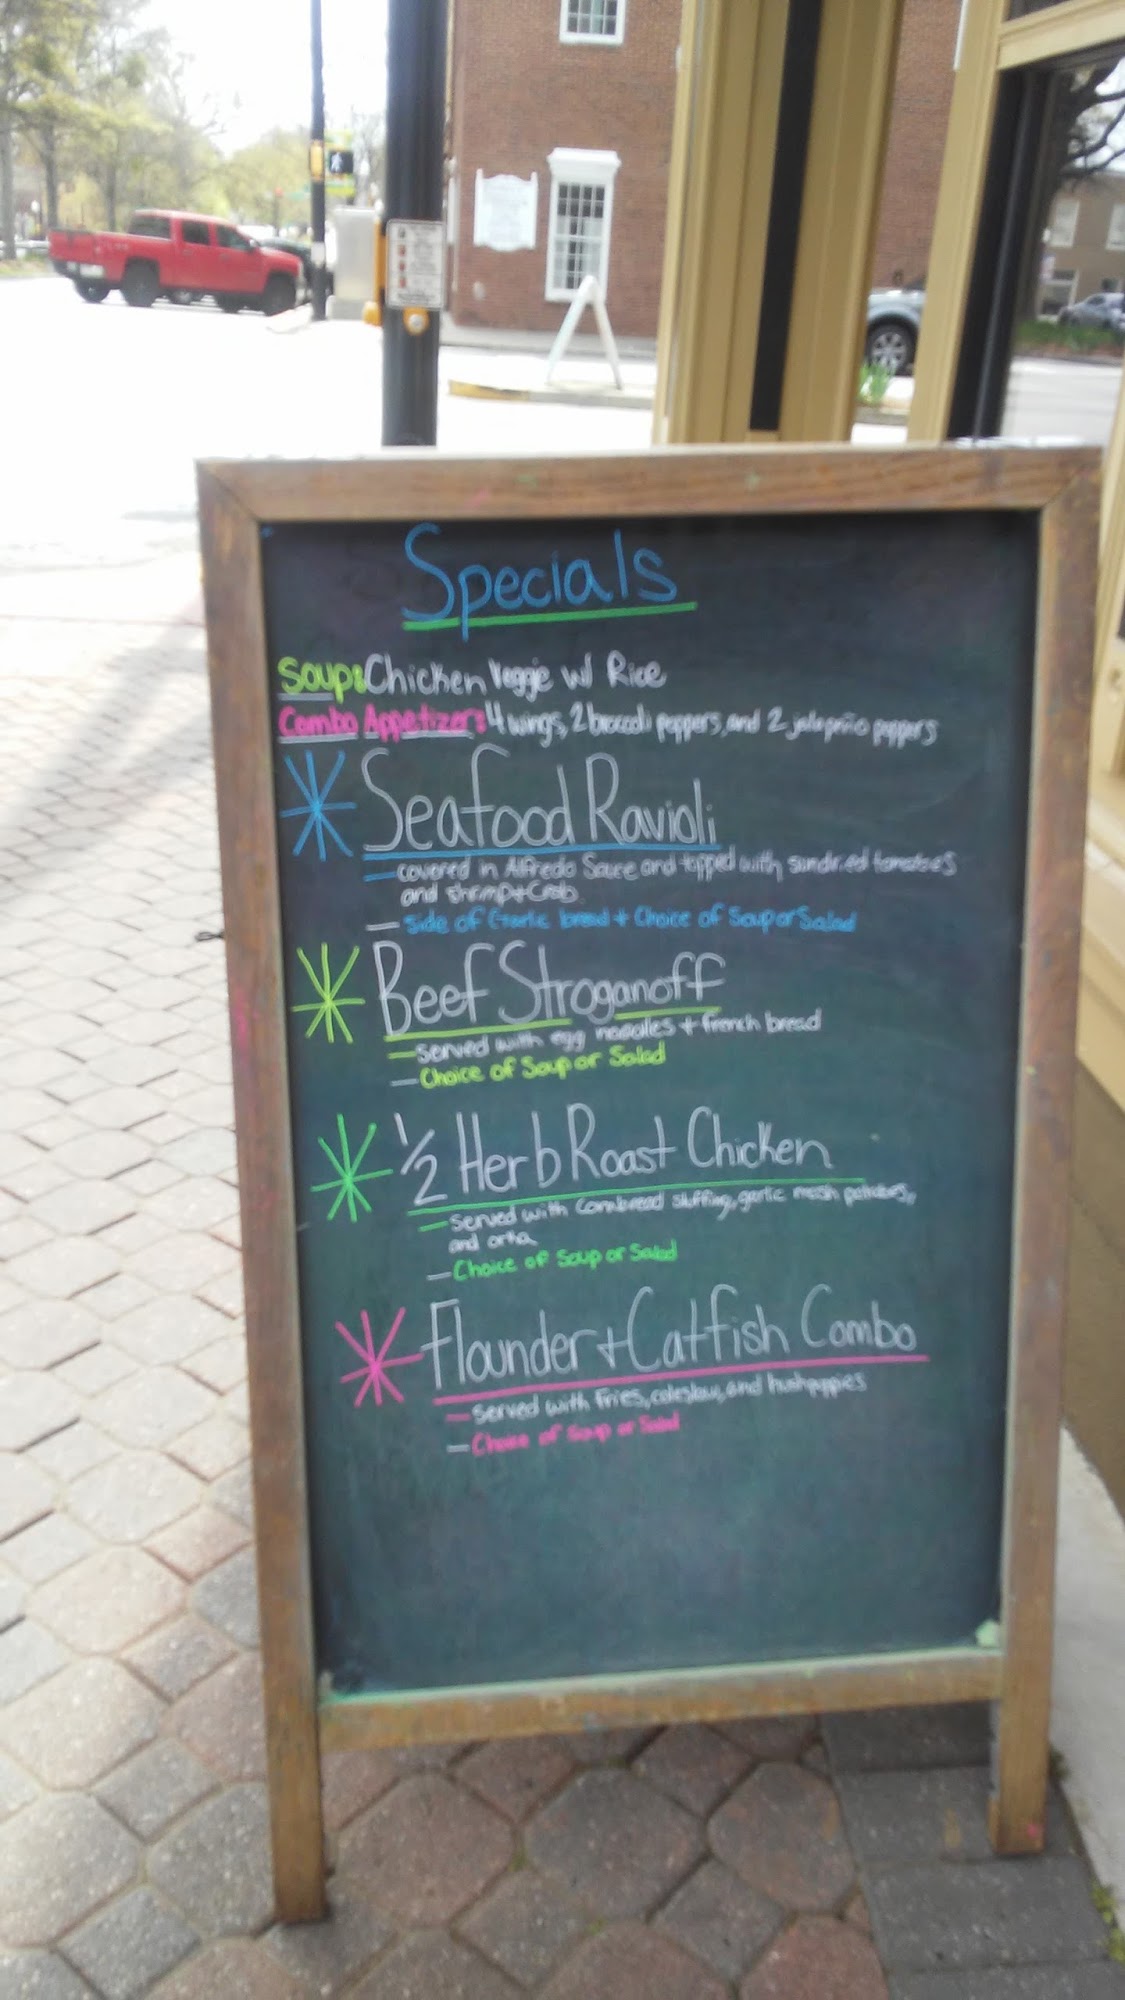 Specials
Soup: Chicken Veggie w/ Rice
Combo Appetizer: 4 wings, 2 broccoli peppers, and 2 jalapeño peppers
Seafood Ravioli
- covered in Alfredo Sauce and topped with sundried tomatoes
and shrimp + Crab
- Side of Garlic bread + Choice of Soup or Salad
Beef Stroganoff
- served with egg noodles + french bread
- Choice of Soup or Salad
1/2 Herb Roast Chicken
- served with Cornbread stuffing, garlic mash potatoes,
and
- Choice of Soup or Salad
Flounder + Catfish Combo
- served with Fries, coleslaw, and hushpuppies
- Choice of Soup or Salad